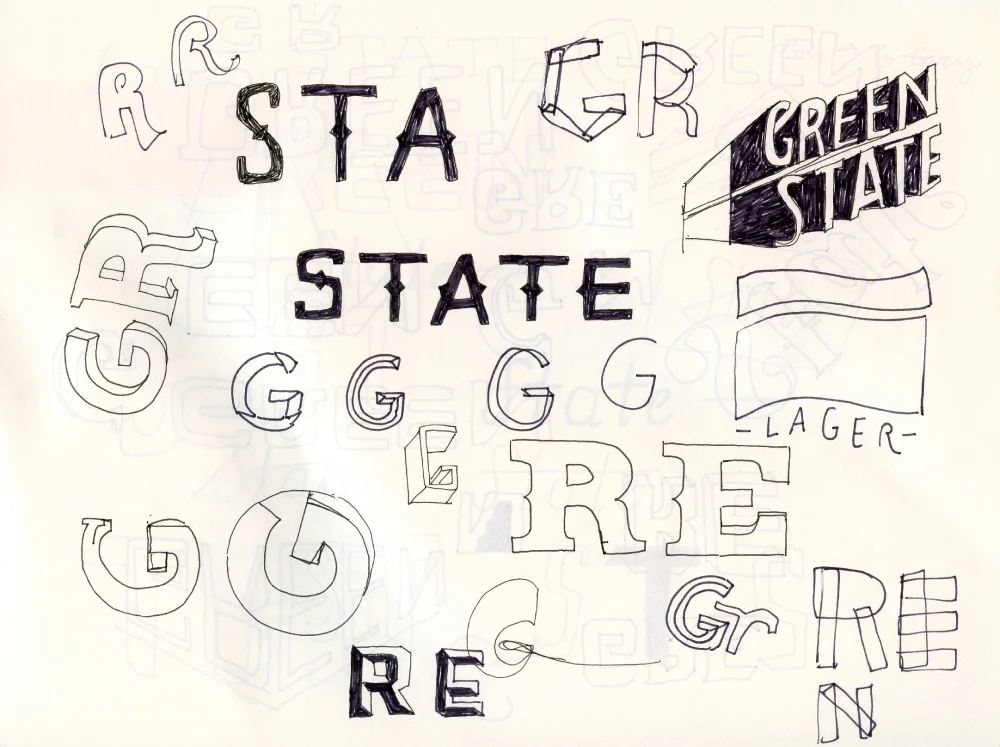 R
R
STA
GR
GREEN
STATE
GR
STATE
G G G G
-LAGER-
G
RE
G
G
G
Gr
RE
N
RE